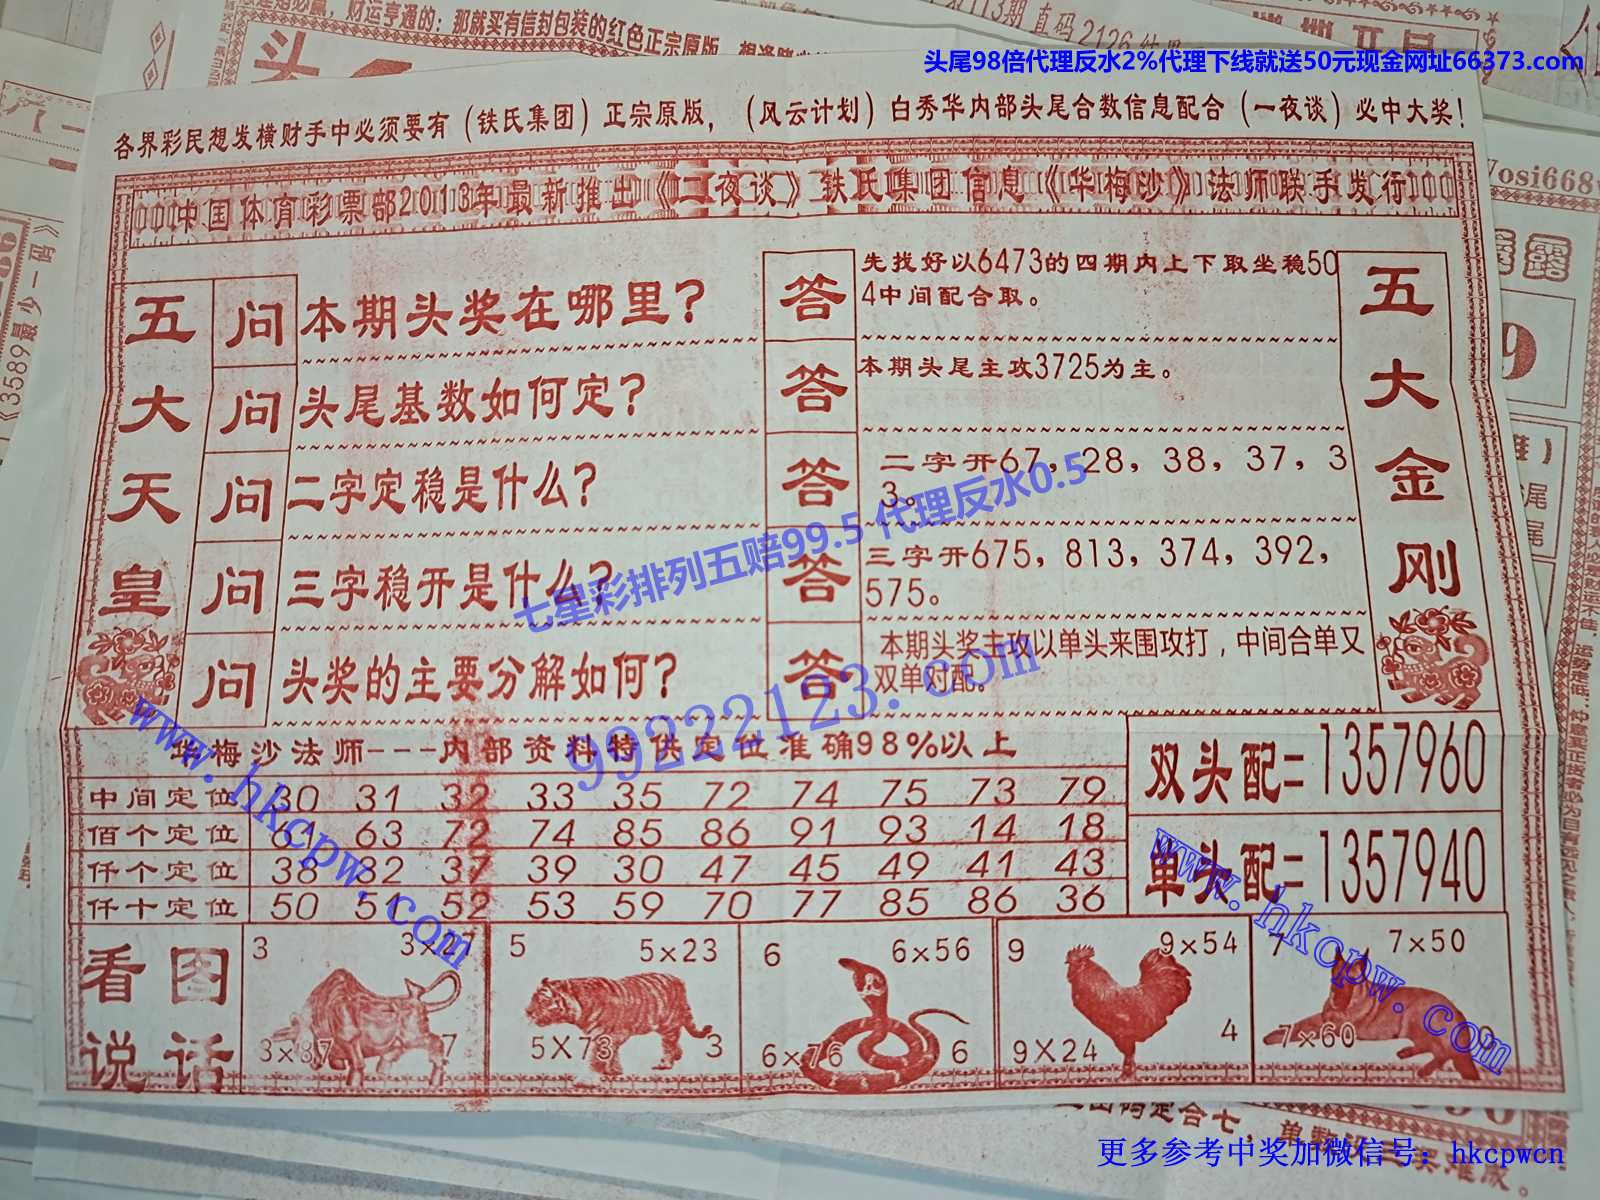 头尾98倍代理反水2%代理下线就送50元现金网址66373.com
各界彩民想发横财手中必须要有（铁氏集团）正宗原版，（风云计划）白秀华内部头尾合数信息配合（一夜谈）必中大奖！
中国体育彩票部2013年最新推出《二夜谈》铁氏集团信息《华梅沙》法师联手发行
五大天皇
问 本期头奖在哪里？
答 先找好以6473的四期内上下取坐稳50
4中间配合取。
问 头尾基数如何定？
答 本期头尾主攻3725为主。
问 二字定稳是什么？
答 二字开67，28，38，37，3
3。
问 三字稳开是什么？
答 三字开675，813，374，392，
575。
问 头奖的主要分解如何？
答 本期头奖主攻以单头来围攻打，中间合单又
双单对配。
五大金刚
七星彩排列五赔99.5 代理反水0.5
99222123.com
www.hkcpw.com
华梅沙法师---内部资料特供定位准确98%以上
中间定位 30 31 32 33 35 72 74 75 73 79
佰个定位 61 63 72 74 85 86 91 93 14 18
仟个定位 38 32 37 39 30 47 45 49 41 43
仟十定位 50 51 52 53 59 70 77 85 86 36
双头配=1357960
单头配=1357940
www.hkcpw.com
看图
说话
3 3×27
3×87 7
5 5×23
5×73 3
6 6×56
6×76 6
9 9×54
9×24 4
7 7×50
7×60 9
更多参考中奖加微信号：hkcpwcn
《3589最少一码》
Vosi668